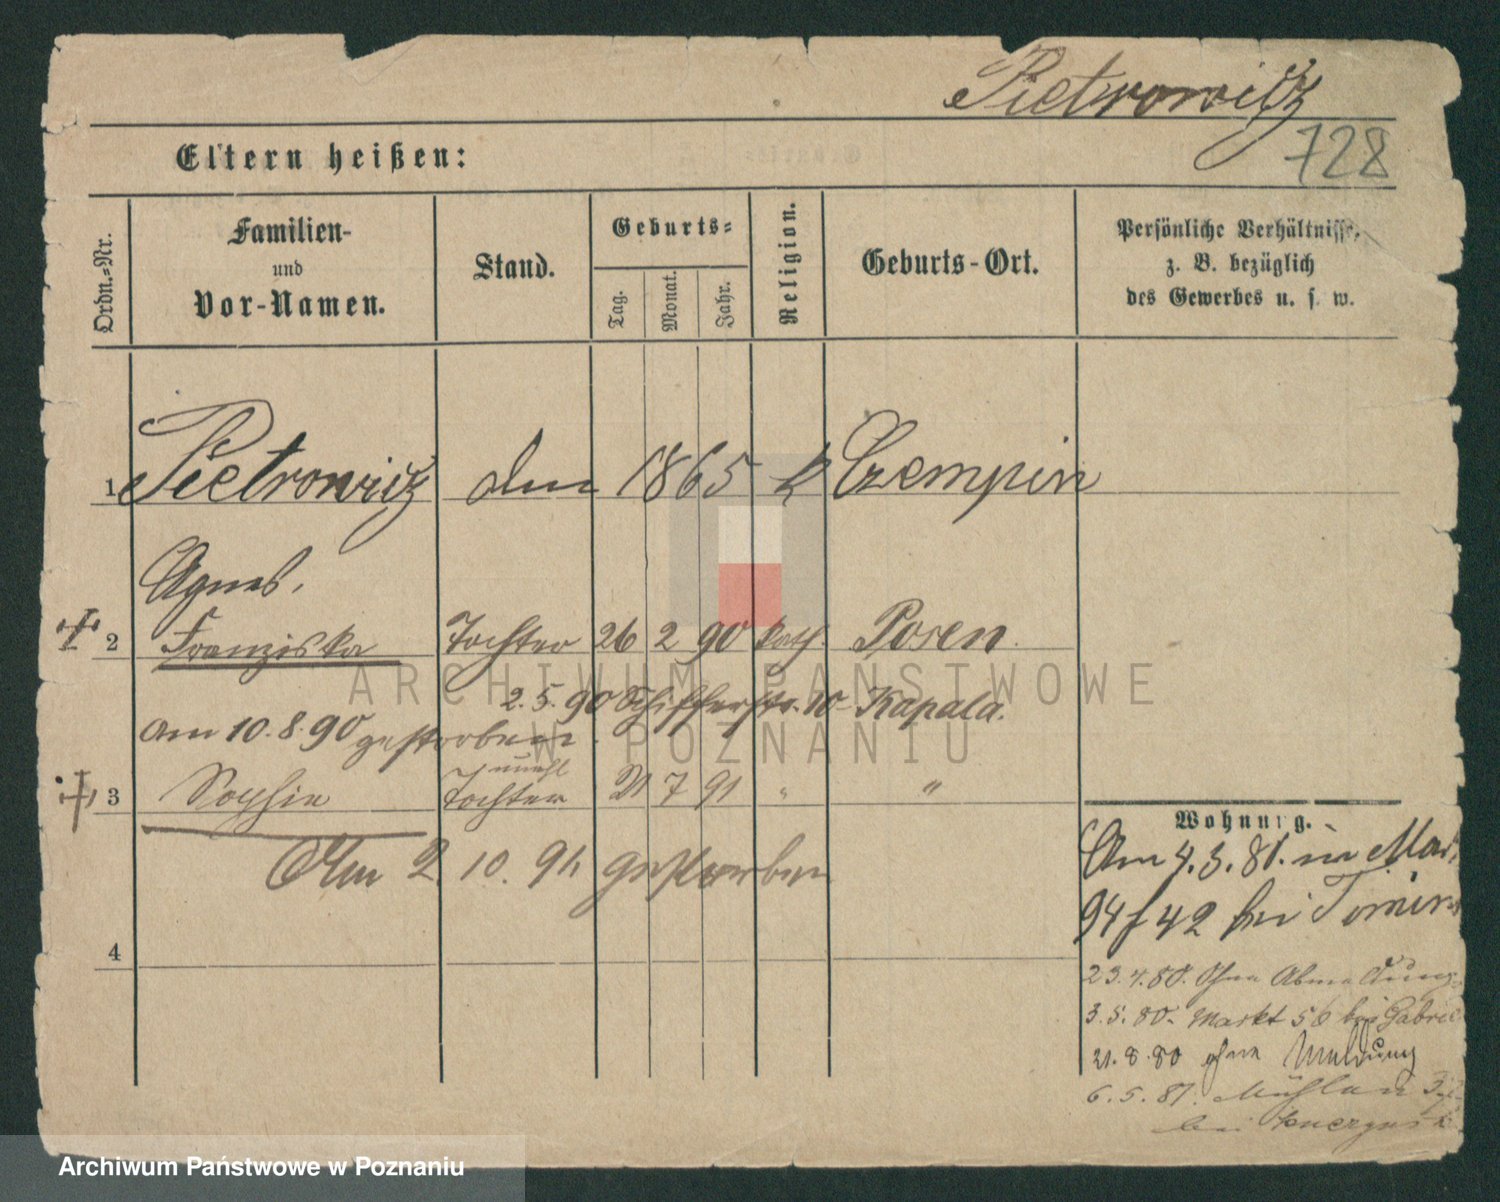 Pietrowicz
728
Eltern heißen:
Ordn.-Nr.
Familien- und Vor-Namen.
Stand.
Geburts-
Tag.
Monat.
Jahr.
Religion.
Geburts-Ort.
Persönliche Verhältnisse,
z. B. bezüglich
des Gewerbes u. s. w.
1 Pietrowicz 1865 k Czempin
Agnes.
2 Franziska Tochter 26 2 90 kath. Posen.
2.5.90 Schifferstr. 10 Kapala.
am 10.8.90 gestorben.
unehl
3 Sophie Tochter 21 7 91 " "
Am 2. 10. 91 gestorben
4
Wohnung.
Am 4.3.80. in
94/42 bei
23.4.80. Ohne Abmeldung
3.5.80. Markt 56 bei Gabriel
21.8.80 ohne Meldung
6.5.81. Mühlen
bei
ARCHIWUM PAŃSTWOWE
W POZNANIU
Archiwum Państwowe w Poznaniu